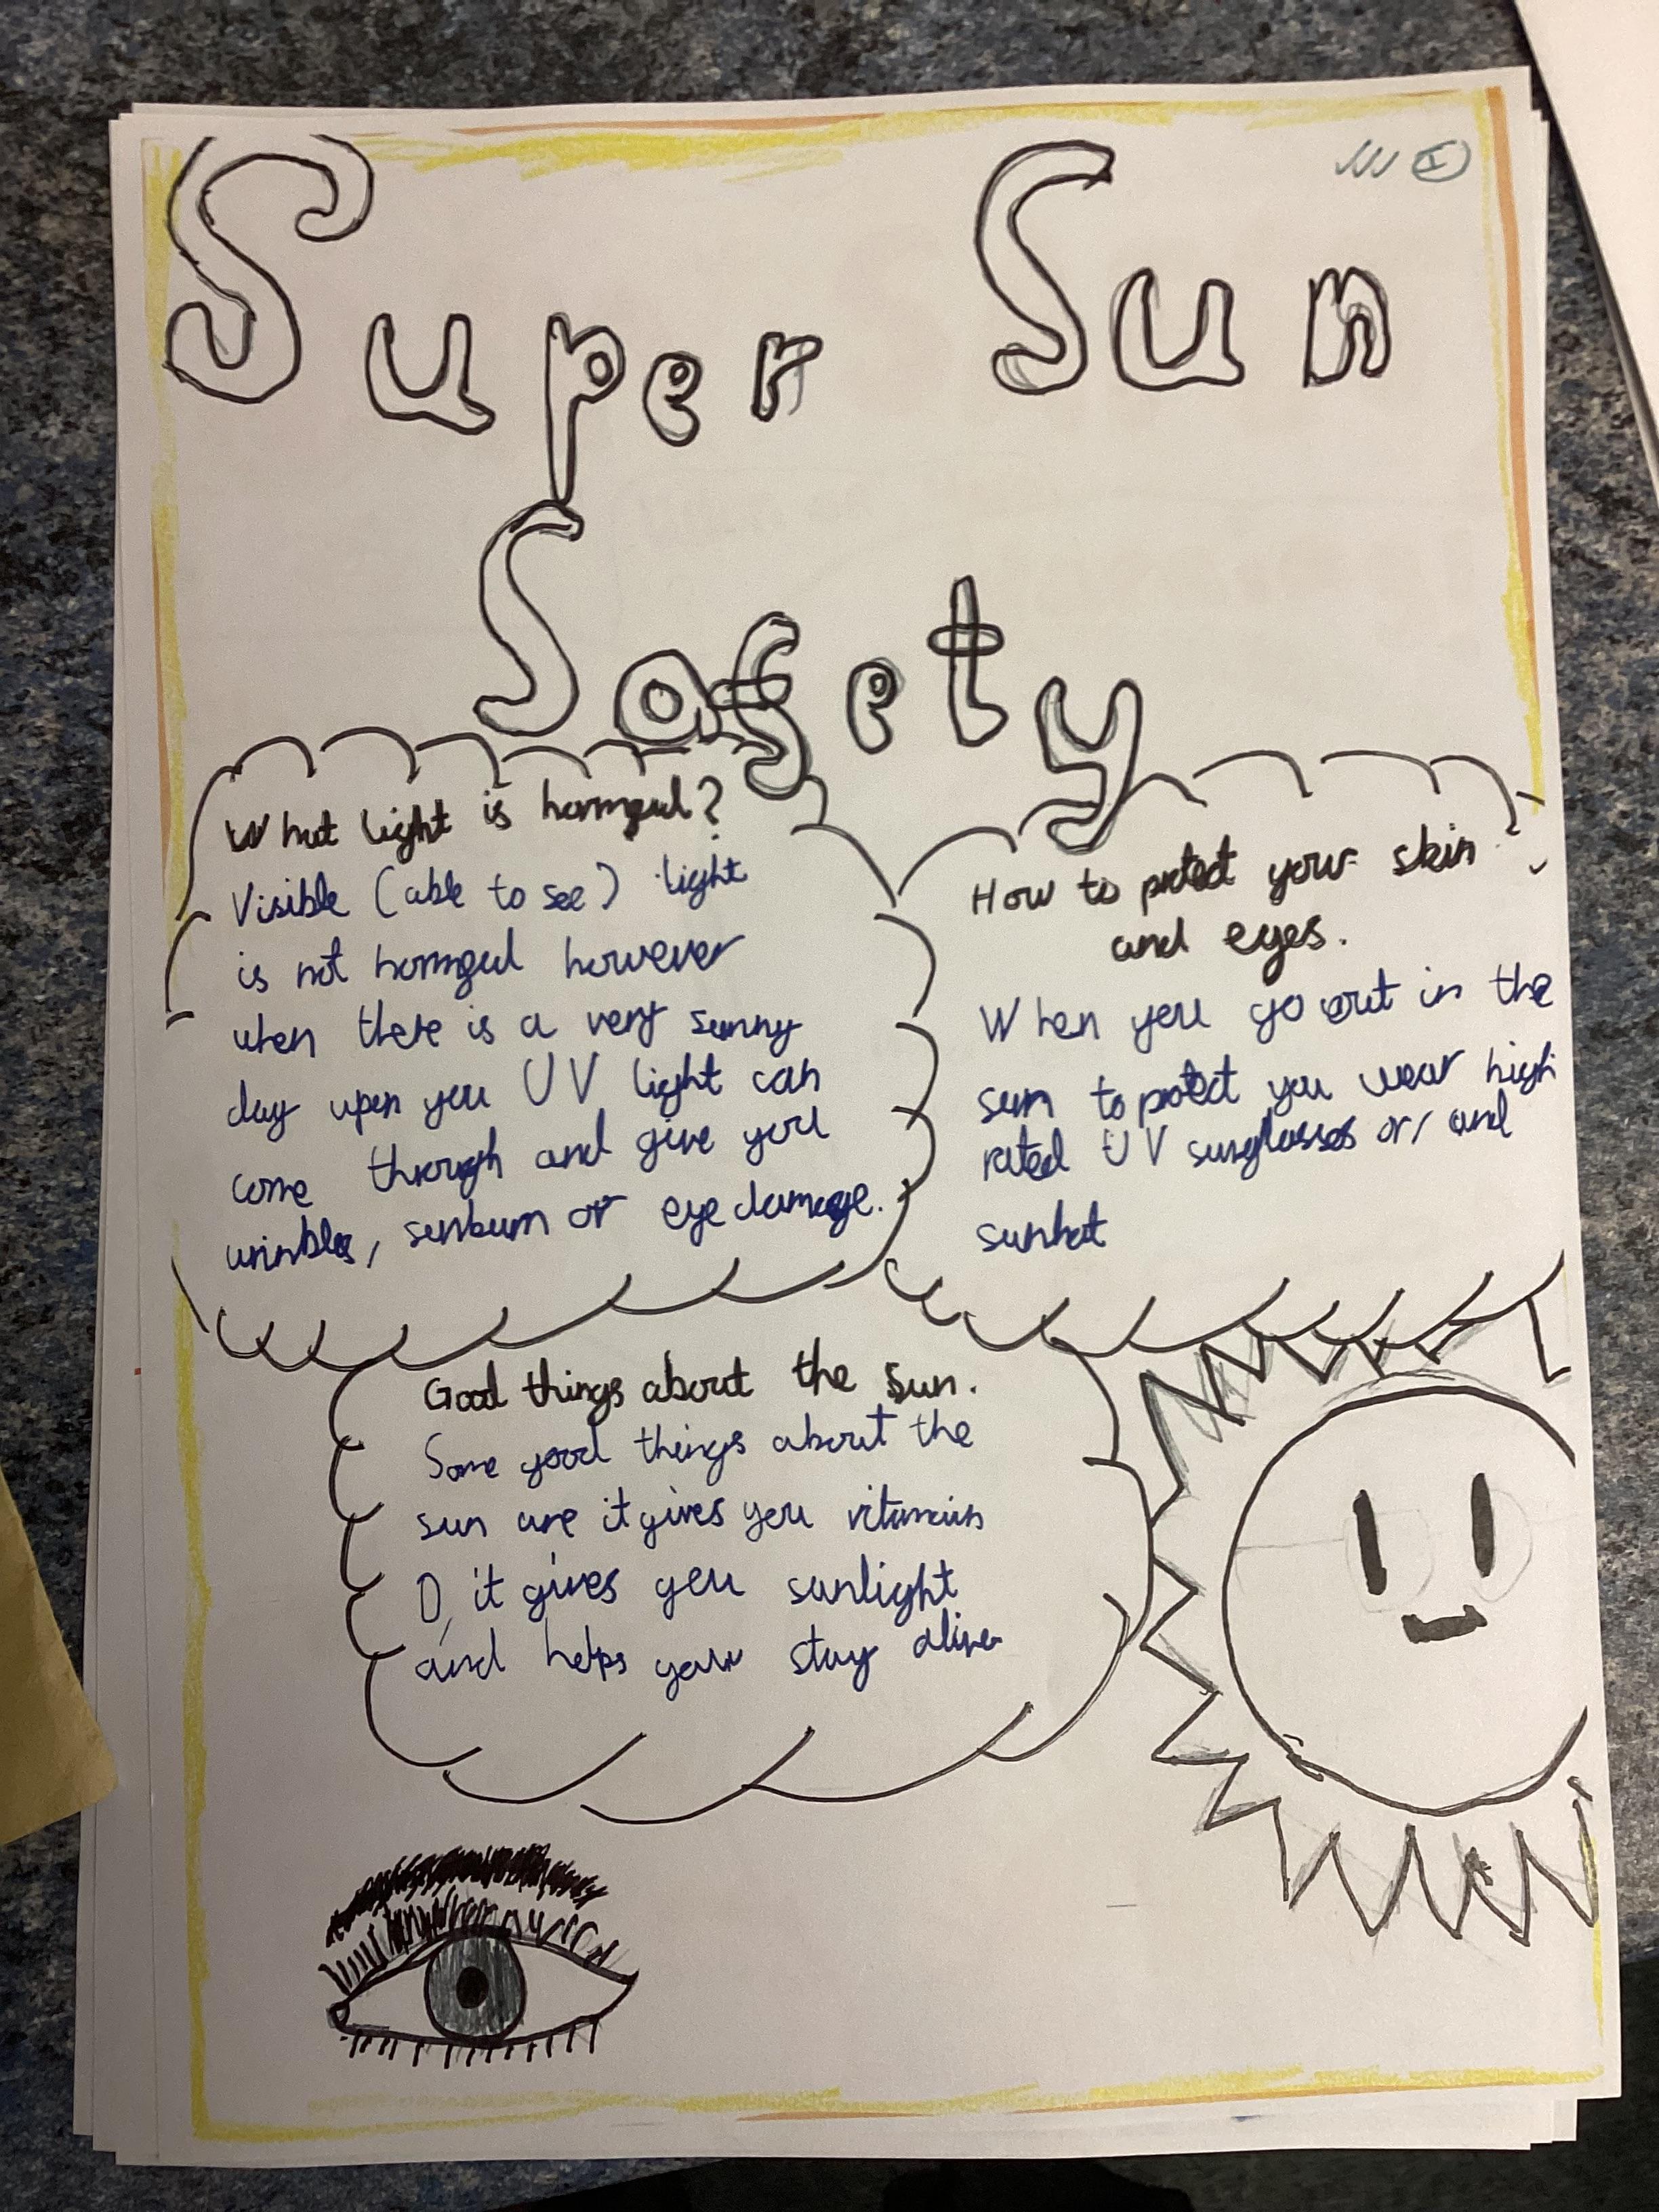 Super Sun
Safety
What light is harmful?
Visible (able to see) light
is not harmful however
when there is a very sunny
day upon you UV light can
come through and give you
wrinkles, sunburn or eye damage.
How to protect your skin
and eyes.
When you go out in the
sun to protect you wear high
rated UV sunglasses or/and
sunhat
Good things about the sun.
Some good things about the
sun are it gives you vitamins
D, it gives you sunlight
and helps your stay alive